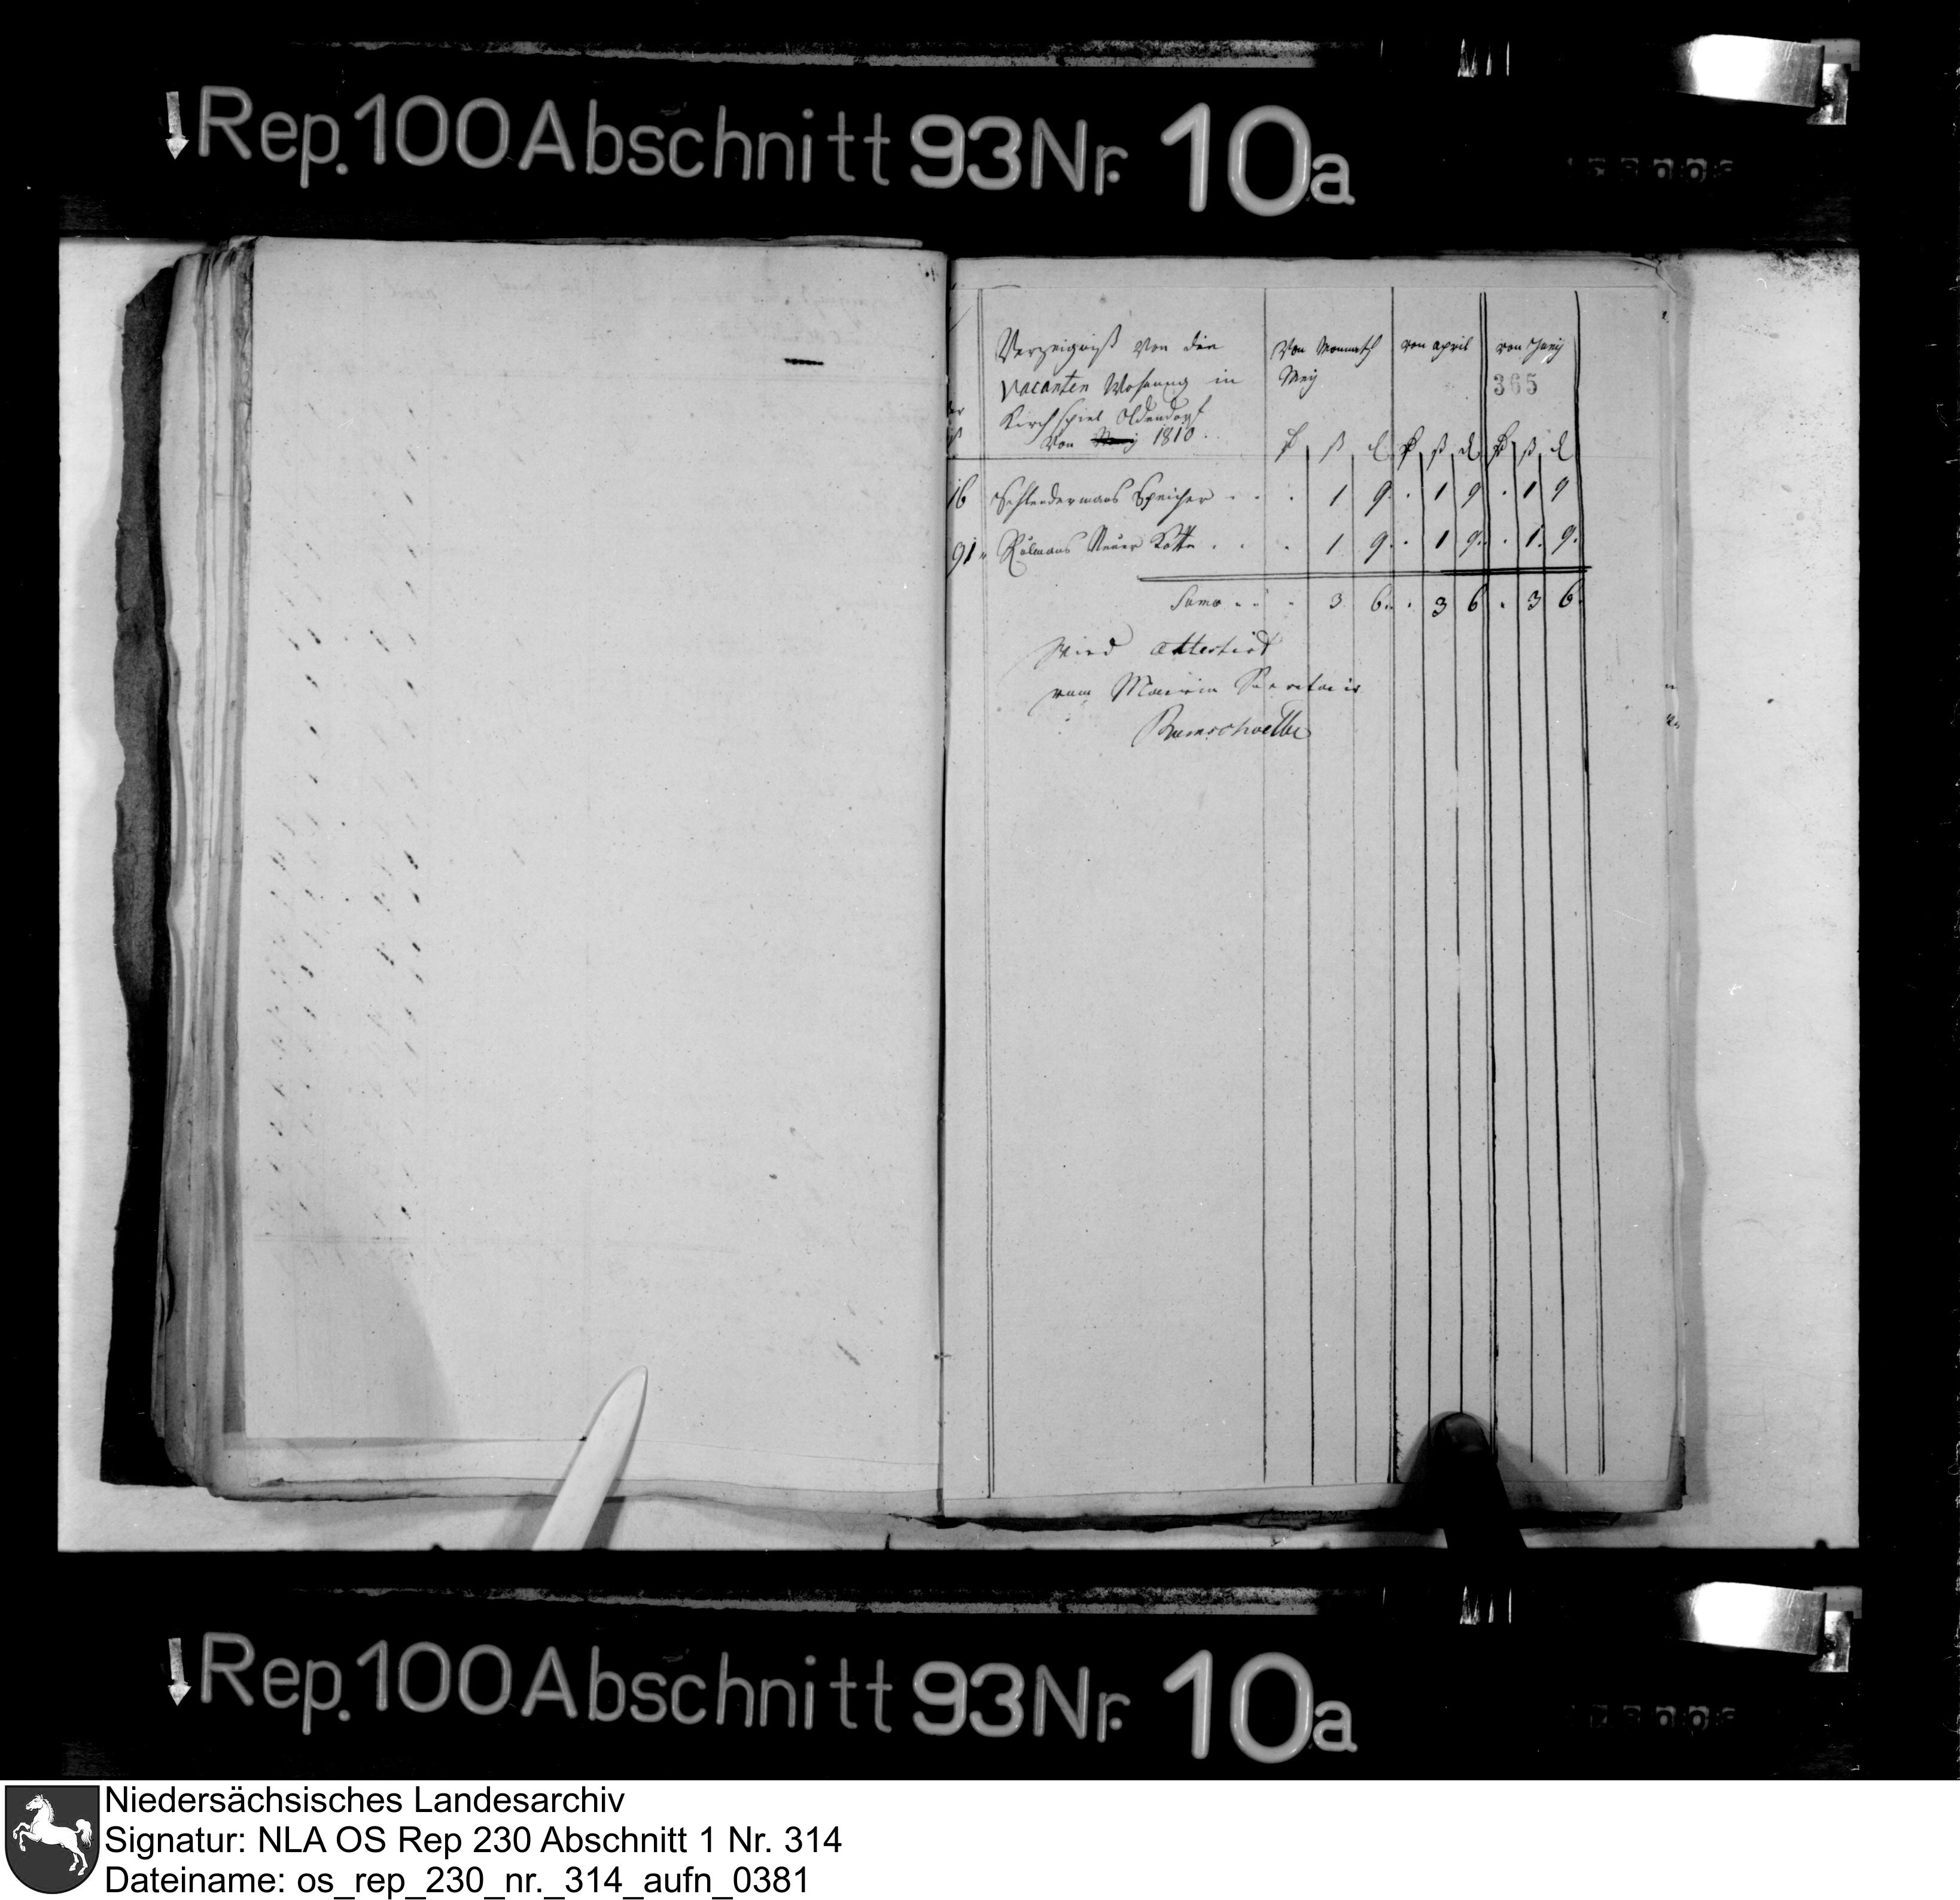 Rep. 100 Abschnitt 93 Nr. 10a
Verzeigniß von die
vacanten Wohnung in
Kirchspiel Oldendorf
von Meij 1810.
von Monnath
Meij
von april
von Junij
365
ß d ß d ß d
16 Schleedermans Speicher . . . 1 9 . 1 9 . 1 9
91 Külmans Neuer Kotte . . . 1 9 . 1 9 . 1 9
Suma . . . 3 6 . 3 6 . 3 6
Wird attestirt
vom Mairie Secretair
Rep. 100 Abschnitt 93 Nr. 10a
Niedersächsisches Landesarchiv
Signatur: NLA OS Rep 230 Abschnitt 1 Nr. 314
Dateiname: os_rep_230_nr._314_aufn_0381